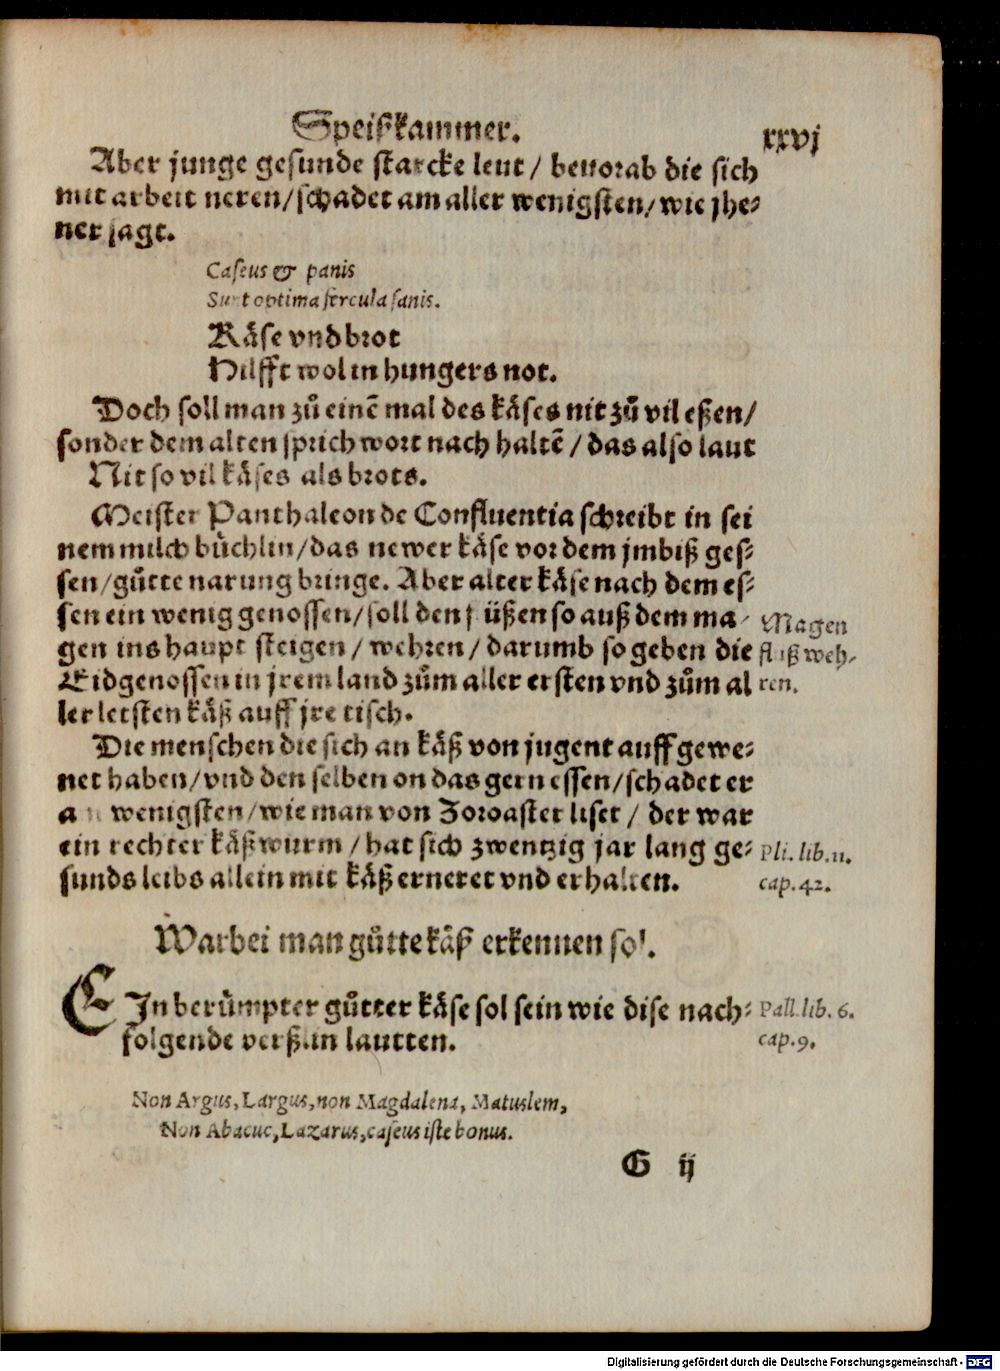 Speißkammer. xxvj
Aber junge gesunde starcke leut / beuorab die sich
mit arbeit neren/schadet am aller wenigsten/wie jhe⸗
ner sagt.
Caseus & panis
Sunt optima fercula sanis.
Käse vnd brot
Hilfft wol in hungers not.
Doch soll man zů einē mal des käses nit zů vil eßen/
sonder dem alten sprich wort nach haltē / das also laut
Nit so vil käses als brots.
Meister Panthaleon de Confluentia schreibt in sei
nem milch büchlin/das newer käse vor dem jmbiß ges⸗
sen/gůtte narung bringe. Aber alter käse nach dem es⸗
sen ein wenig genossen/soll den flüßen so auß dem ma⸗
gen ins haupt steigen / wehren / darumb so geben die
Eidgenossen in jrem land zům aller ersten vnd zům al
ler letsten käß auff jre tisch.
Magen
fluß weh⸗
ren.
Die menschen die sich an käß von jugent auff gewe⸗
net haben/vnd den selben on das gern essen/schadet er
am wenigsten/wie man von Zoroaster liset / der war
ein rechter käßwurm / hat sich zwentzig jar lang ge⸗
sunds leibs allein mit käß erneret vnd erhalten.
Pli. lib. 11.
cap. 42.
Warbei man gůtte käß erkennen sol.
EIn berümpter gůtter käse sol sein wie dise nach⸗
folgende verß.in lautten.
Pall. lib. 6.
cap. 9.
Non Argus, Largus, non Magdalena, Matuslem,
Non Abacuc, Lazarus, caseus iste bonus.
G ij
Digitalisierung gefördert durch die Deutsche Forschungsgemeinschaft - DFG